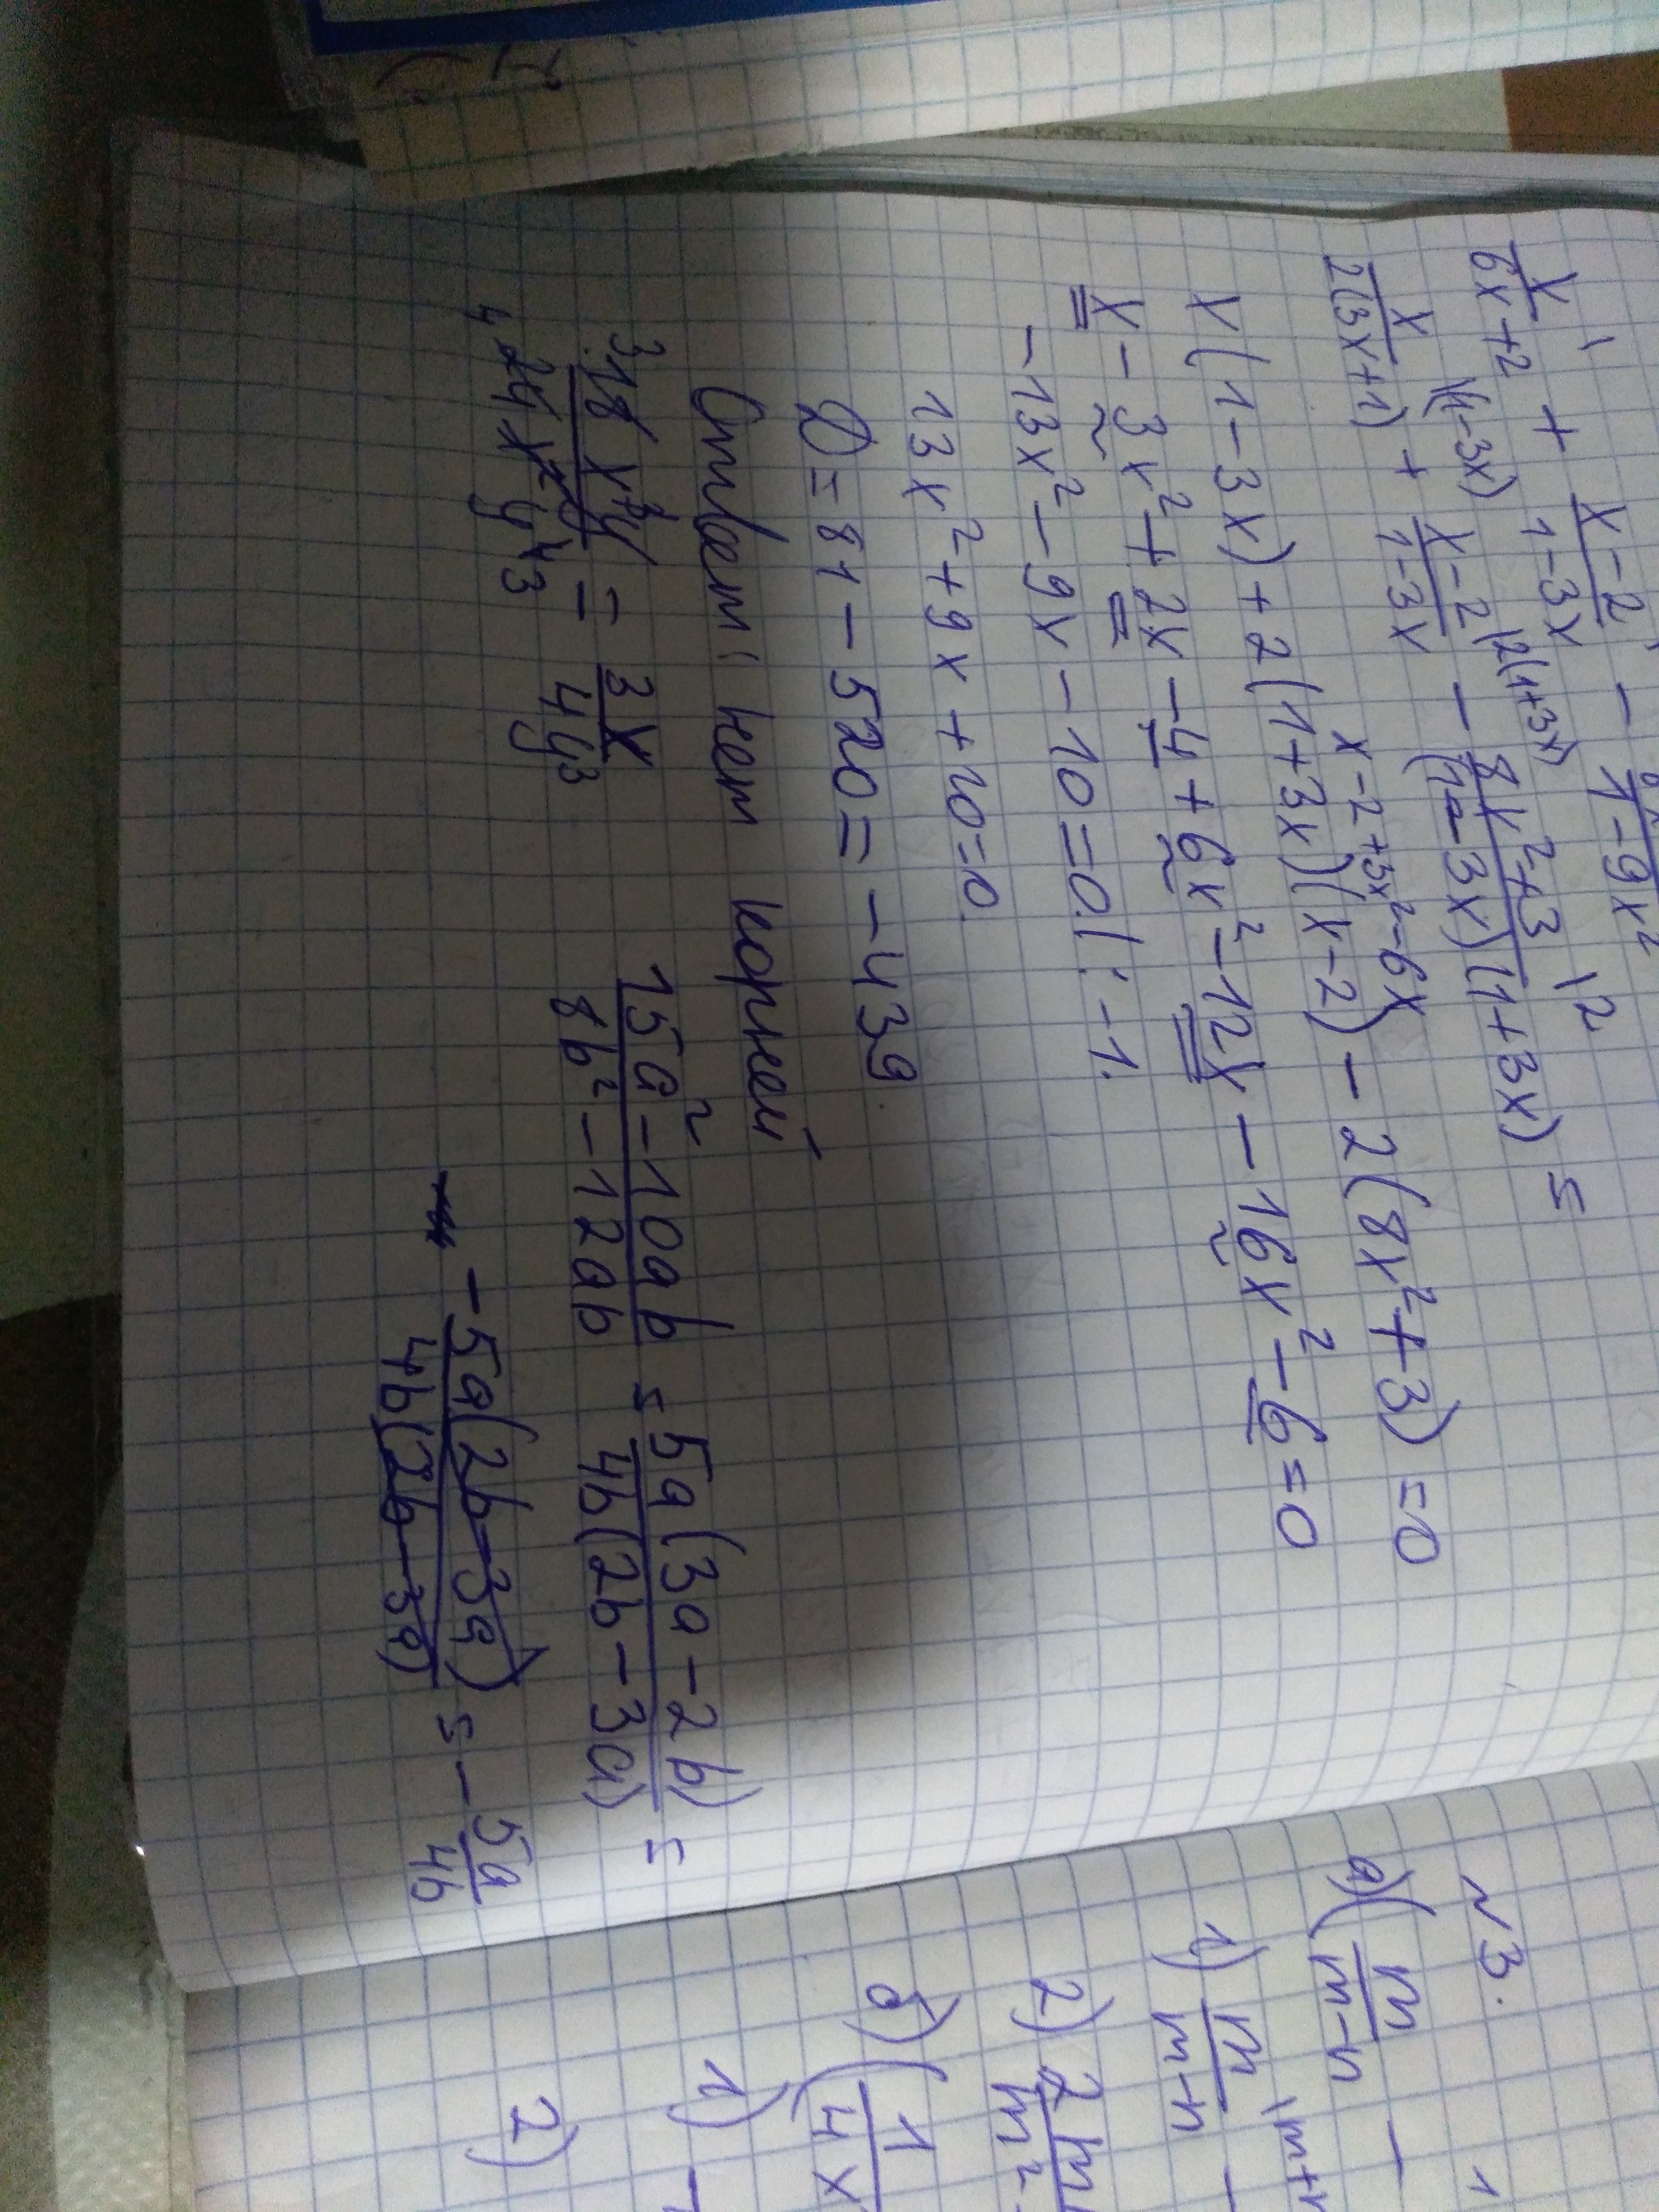 x/(6x+2) + (x-2)/(1-3x) - /(1-9x²)
x/(2(3x+1)) \(1-3x) + (x-2)/(1-3x) \2(1+3x) - (8x²+3)/((1-3x)(1+3x)) \2 =
x-2+3x²-6x
x(1-3x)+2(1+3x)(x-2)-2(8x²+3)=0
x-3x²+2x-4+6x²-12x-16x²-6=0
-13x²-9x-10=0 |:-1.
13x²+9x+10=0.
D=81-520=-439
Ответ: нет корней
= 3x/4y³
(15a²-10ab)/(8b²-12ab) = 5a(3a-2b)/4b(2b-3a) =
-5a(2b-3a)/4b(2b-3a) = -5a/4b
№3.
а)(m/(m-n) -
1) m/(m-n) \m+n -
2) 2m
m²
б)(1/4x
1)
2)